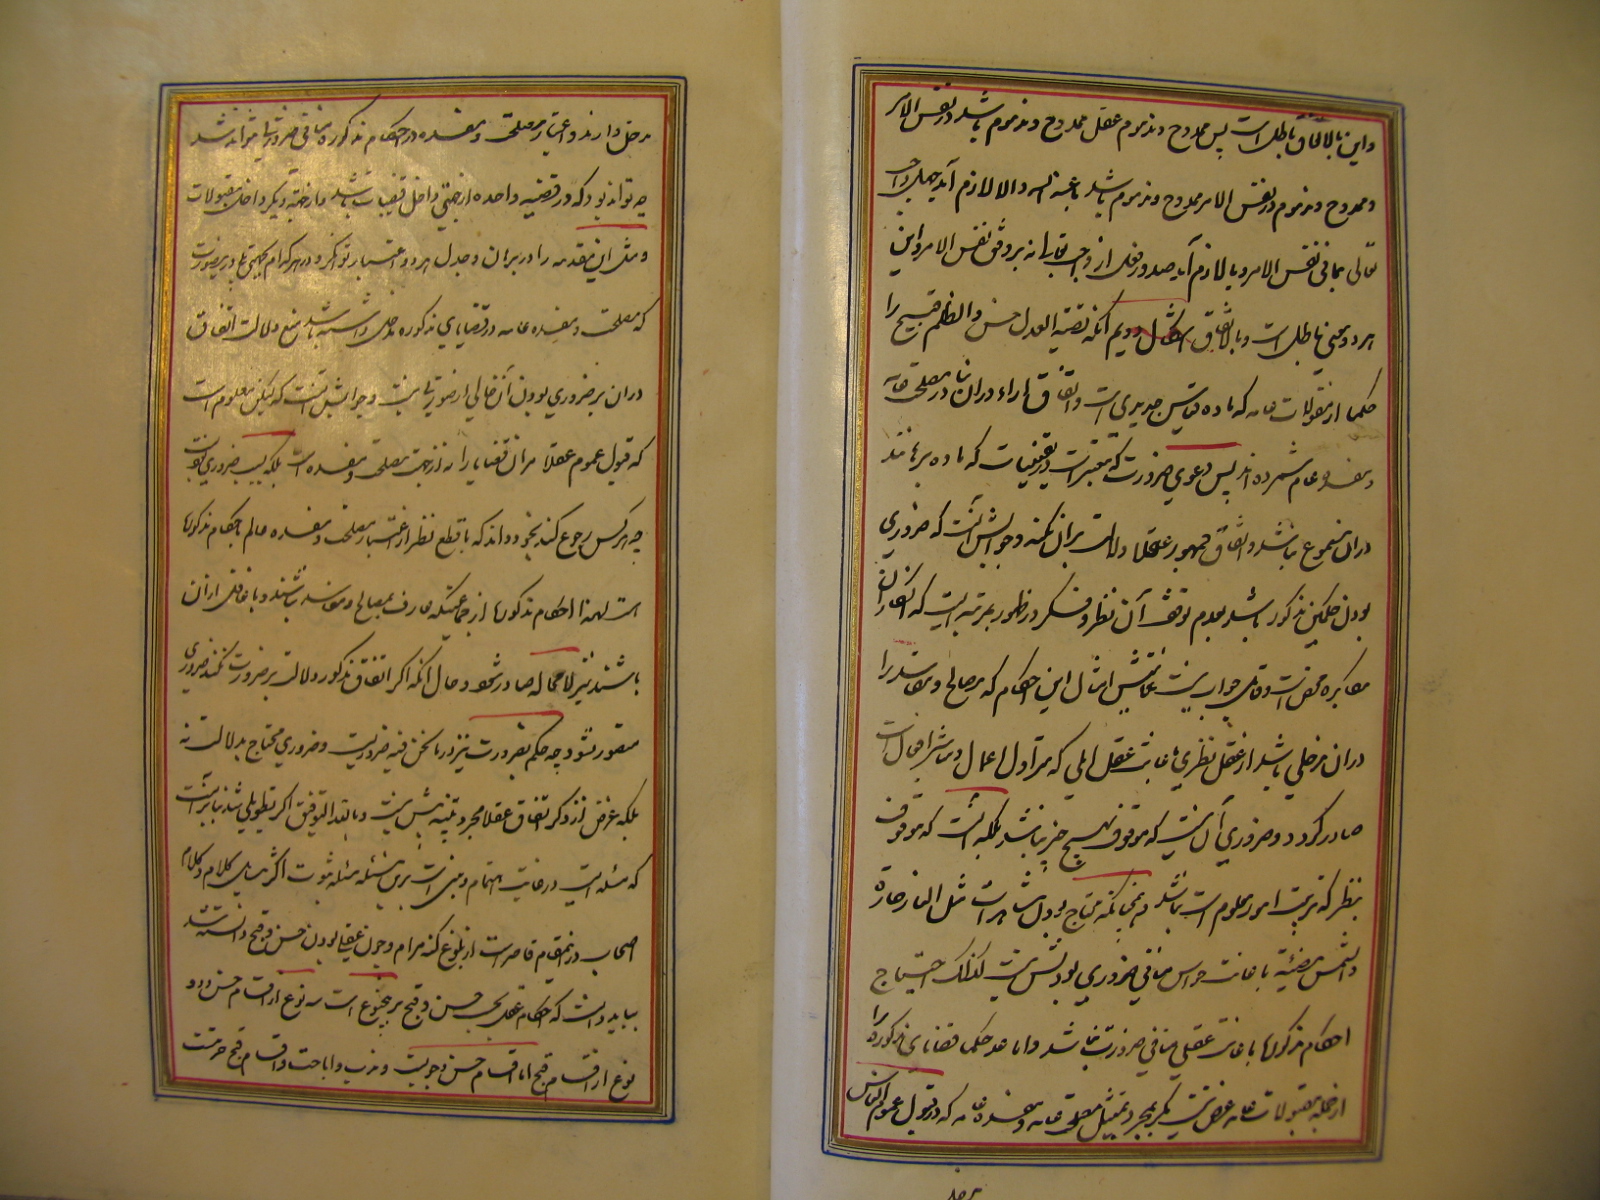 و این بالاتفاق باطل است پس ممدوح و مذموم عقل ممدوح و مذموم باشد در نفس الامر
و ممدوح و مذموم در نفس الامر ممدوح و مذموم باشد عند الله و الا لازم آید جهل واجب
تعالی بما فی نفس الامر و یا لازم آید صدور فعل از واجب تعالی نه بر وفق نفس الامر و این
هر دو محال باطل است و بالاتفاق اشکال دویم آنکه قضیه العدل حسن و الظلم قبیح را
حکما از مقبولات عامه که ماده قیاس جدلی است و اتفاق آراء در آن بنابر مصلحت عامه
و مفسده عام شمرده اند پس دعوی ضرورت که معتبر است در یقینیات که ماده برهانند
در آن مسموع نباشد و اتفاق جمهور عقلا دلالت بر آن نکند و جوابش آنست که ضروری
بودن حکمین مذکورین و عدم توقف آن بنظر و فکر در ظهور بمرتبه ایست که انکار آن
مکابره محض است و قابل جواب نیست غایتش امثال این احکام که مصالح و مفاسد را
در آن مدخلی باشد از عقل نظری باعانت عقل عملی که مزاول اعمال و مباشر افعال است
صادر گردد و ضروری آن نیست که موقوف بهیچ چیز نباشد بلکه آنست که موقوف
بنظر که ترتیب امور معلوم است نباشد و همچنانکه محتاج بودن مشاهدات مثل النار حارة
و الشمس مضیئة باعانت حواس منافی ضروری بودنش نیست کذلک احتیاج
احکام مذکوره باعانت عقل عملی منافی ضرورت نباشد و اما عد حکما قضایای مذکوره را
از جمله مقبولات عامه غرض نیست مگر مجرد تمثیل مصلحت عامه و مفسده عامه که در قبول عموم الناس
مدخل
مدخل دارند و اعتبار مصلحت و مفسده در احکام مذکوره منافی ضرورت نتواند شد
چه تواند بود که قضیه واحده از جهتی داخل یقینیات باشد و از جهة دیگر داخل مقبولات
و مثل این مقدمه را در برهان و جدل هر دو اعتبار توان کرد در هر کدام بجهتی و در اینصورت
که مصلحت و مفسده عامه در قضایای مذکوره مدخل داشته باشد منع دلالت اتفاق
در آن بر ضروری بودن آن خالی از صورتی نیست و جوابش آنست که لیکن معلوم است
که قبول عموم عقلا مر آن قضایا را نه از جهت مصلحت و مفسده است بلکه بسبب ضروری بودنست
چه هر کس رجوع کند بخود داند که با قطع نظر از اعتبار مصلحت و مفسده حاکم باحکام مذکوره
است لهذا احکام مذکوره از جماعتیکه عارف بمصالح و مفاسد نباشند و یا غافل از آن
باشند نیز لا محاله صادر شود و حال آنکه اگر اتفاق مذکور دلالت بر ضرورت نکند ضرری
متصور نشود چه حکم بضرورت نیز در ما نحن فیه ضروریست و ضروری محتاج بدلالت نه
بلکه غرض از ذکر اتفاق عقلا مجرد تنبیه بیش نیست و بالله التوفیق اگر تطویلی شد بنابر آنست
که مسئله ایست در غایت اهتمام و مبنی است برین مسئله مسئله نبوت اکثر مسایل کلام و کلام
اصحاب در این مقام قاصر است از بلوغ کنه مرام و چون عقلی بودن حسن و قبح دانسته شد
بباید دانست که احکام عقلی بحسب حسن و قبح بر پنج نوع است سه نوع از اقسام حسن و دو
نوع از اقسام قبح اما اقسام حسن وجوبست و ندب و اباحت و اقسام قبح حرمت